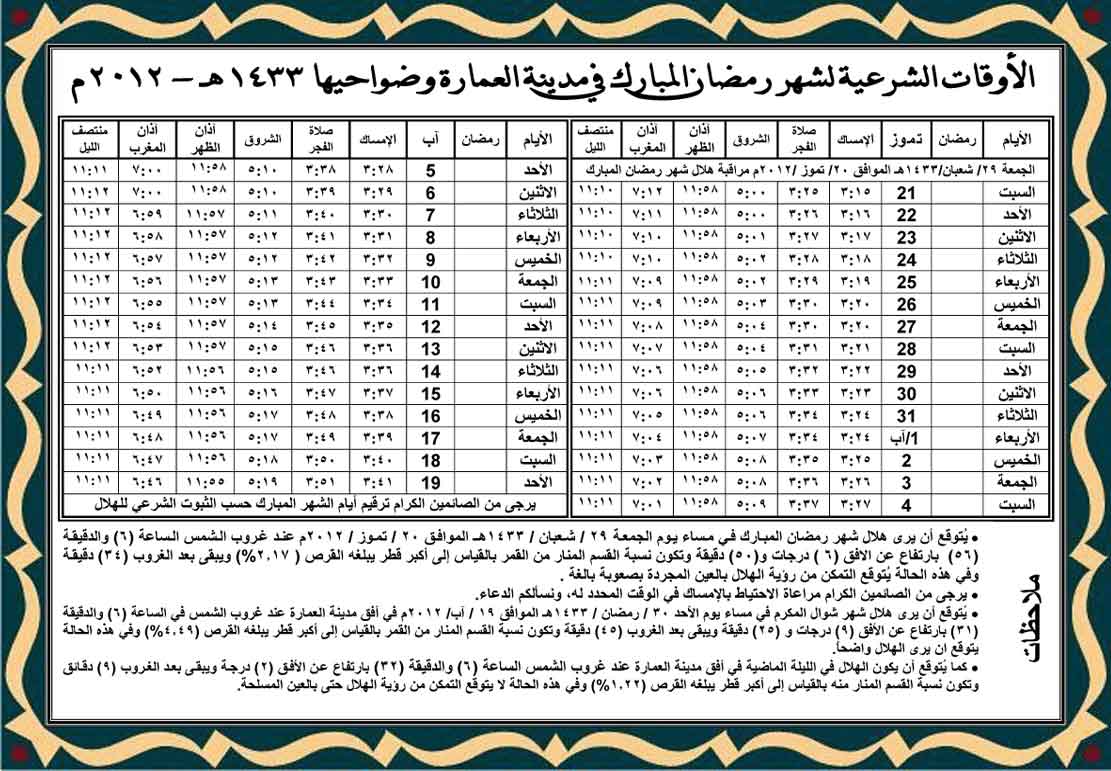 الأوقات الشرعية لشهر رمضان المبارك في مدينة العمارة وضواحيها ١٤٣٣هـ – ٢٠١٢م
الأيام رمضان تموز الإمساك صلاة الفجر الشروق أذان الظهر أذان المغرب منتصف الليل
الجمعة ٢٩/ شعبان/١٤٣٣هـ الموافق ٢٠/ تموز /٢٠١٢م مراقبة هلال شهر رمضان المبارك
السبت 21 ٣:١٥ ٣:٢٥ ٥:٠٠ ١١:٥٨ ٧:١٢ ١١:١٠
الأحد 22 ٣:١٦ ٣:٢٦ ٥:٠٠ ١١:٥٨ ٧:١١ ١١:١٠
الاثنين 23 ٣:١٧ ٣:٢٧ ٥:٠١ ١١:٥٨ ٧:١٠ ١١:١٠
الثلاثاء 24 ٣:١٨ ٣:٢٨ ٥:٠٢ ١١:٥٨ ٧:١٠ ١١:١٠
الأربعاء 25 ٣:١٩ ٣:٢٩ ٥:٠٢ ١١:٥٨ ٧:٠٩ ١١:١١
الخميس 26 ٣:٢٠ ٣:٣٠ ٥:٠٣ ١١:٥٨ ٧:٠٩ ١١:١١
الجمعة 27 ٣:٢٠ ٣:٣٠ ٥:٠٤ ١١:٥٨ ٧:٠٨ ١١:١١
السبت 28 ٣:٢١ ٣:٣١ ٥:٠٤ ١١:٥٨ ٧:٠٧ ١١:١١
الأحد 29 ٣:٢٢ ٣:٣٢ ٥:٠٥ ١١:٥٨ ٧:٠٦ ١١:١١
الاثنين 30 ٣:٢٣ ٣:٣٣ ٥:٠٦ ١١:٥٨ ٧:٠٦ ١١:١١
الثلاثاء 31 ٣:٢٤ ٣:٣٤ ٥:٠٦ ١١:٥٨ ٧:٠٥ ١١:١١
الأربعاء 1/آب ٣:٢٤ ٣:٣٤ ٥:٠٧ ١١:٥٨ ٧:٠٤ ١١:١١
الخميس 2 ٣:٢٥ ٣:٣٥ ٥:٠٨ ١١:٥٨ ٧:٠٣ ١١:١١
الجمعة 3 ٣:٢٦ ٣:٣٦ ٥:٠٨ ١١:٥٨ ٧:٠٢ ١١:١١
السبت 4 ٣:٢٧ ٣:٣٧ ٥:٠٩ ١١:٥٨ ٧:٠١ ١١:١١
الأيام رمضان آب الإمساك صلاة الفجر الشروق أذان الظهر أذان المغرب منتصف الليل
الأحد 5 ٣:٢٨ ٣:٣٨ ٥:١٠ ١١:٥٨ ٧:٠٠ ١١:١١
الاثنين 6 ٣:٢٩ ٣:٣٩ ٥:١٠ ١١:٥٨ ٧:٠٠ ١١:١٢
الثلاثاء 7 ٣:٣٠ ٣:٤٠ ٥:١١ ١١:٥٧ ٦:٥٩ ١١:١٢
الأربعاء 8 ٣:٣١ ٣:٤١ ٥:١٢ ١١:٥٧ ٦:٥٨ ١١:١٢
الخميس 9 ٣:٣٢ ٣:٤٢ ٥:١٢ ١١:٥٧ ٦:٥٧ ١١:١٢
الجمعة 10 ٣:٣٣ ٣:٤٣ ٥:١٣ ١١:٥٧ ٦:٥٦ ١١:١٢
السبت 11 ٣:٣٤ ٣:٤٤ ٥:١٣ ١١:٥٧ ٦:٥٥ ١١:١٢
الأحد 12 ٣:٣٥ ٣:٤٥ ٥:١٤ ١١:٥٧ ٦:٥٤ ١١:١٢
الاثنين 13 ٣:٣٦ ٣:٤٦ ٥:١٥ ١١:٥٧ ٦:٥٣ ١١:١٢
الثلاثاء 14 ٣:٣٦ ٣:٤٦ ٥:١٥ ١١:٥٦ ٦:٥٢ ١١:١١
الأربعاء 15 ٣:٣٧ ٣:٤٧ ٥:١٦ ١١:٥٦ ٦:٥٠ ١١:١١
الخميس 16 ٣:٣٨ ٣:٤٨ ٥:١٧ ١١:٥٦ ٦:٤٩ ١١:١١
الجمعة 17 ٣:٣٩ ٣:٤٩ ٥:١٧ ١١:٥٦ ٦:٤٨ ١١:١١
السبت 18 ٣:٤٠ ٣:٥٠ ٥:١٨ ١١:٥٦ ٦:٤٧ ١١:١١
الأحد 19 ٣:٤١ ٣:٥١ ٥:١٩ ١١:٥٥ ٦:٤٦ ١١:١١
يرجى من الصائمين الكرام ترقيم أيام الشهر المبارك حسب الثبوت الشرعي للهلال
ملاحظات
• يُتوقع أن يرى هلال شهر رمضان المبارك في مساء يوم الجمعة ٢٩ / شعبان / ١٤٣٣هـ الموافق ٢٠ / تموز / ٢٠١٢م عند غروب الشمس الساعة (٦) والدقيقة
(٥٦) بارتفاع عن الافق (٦ ) درجات و(٥٠) دقيقة وتكون نسبة القسم المنار من القمر بالقياس إلى أكبر قطر يبلغه القرص ( ٢,١٧%) ويبقى بعد الغروب (٣٤) دقيقة
وفي هذه الحالة يُتوقع التمكن من رؤية الهلال بالعين المجردة بصعوبة بالغة .
• يرجى من الصائمين الكرام مراعاة الاحتياط بالإمساك في الوقت المحدد له، ونسألكم الدعاء.
• يُتوقع أن يرى هلال شهر شوال المكرم في مساء يوم الأحد ٣٠ / رمضان / ١٤٣٣هـ الموافق ١٩ / آب/ ٢٠١٢م في أفق مدينة العمارة عند غروب الشمس في الساعة (٦) والدقيقة
(٣١) بارتفاع عن الأفق (٩) درجات و (٢٥) دقيقة ويبقى بعد الغروب (٤٥) دقيقة وتكون نسبة القسم المنار من القمر بالقياس إلى أكبر قطر يبلغه القرص (٤,٤٩%) وفي هذه الحالة
يتوقع ان يرى الهلال واضحاً.
• كما يُتوقع أن يكون الهلال في الليلة الماضية في أفق مدينة العمارة عند غروب الشمس الساعة (٦) والدقيقة (٣٢) بارتفاع عن الأفق (٢) درجة ويبقى بعد الغروب (٩) دقائق
وتكون نسبة القسم المنار منه بالقياس إلى أكبر قطر يبلغه القرص (١,٢٢%) وفي هذه الحالة لا يتوقع التمكن من رؤية الهلال حتى بالعين المسلحة.